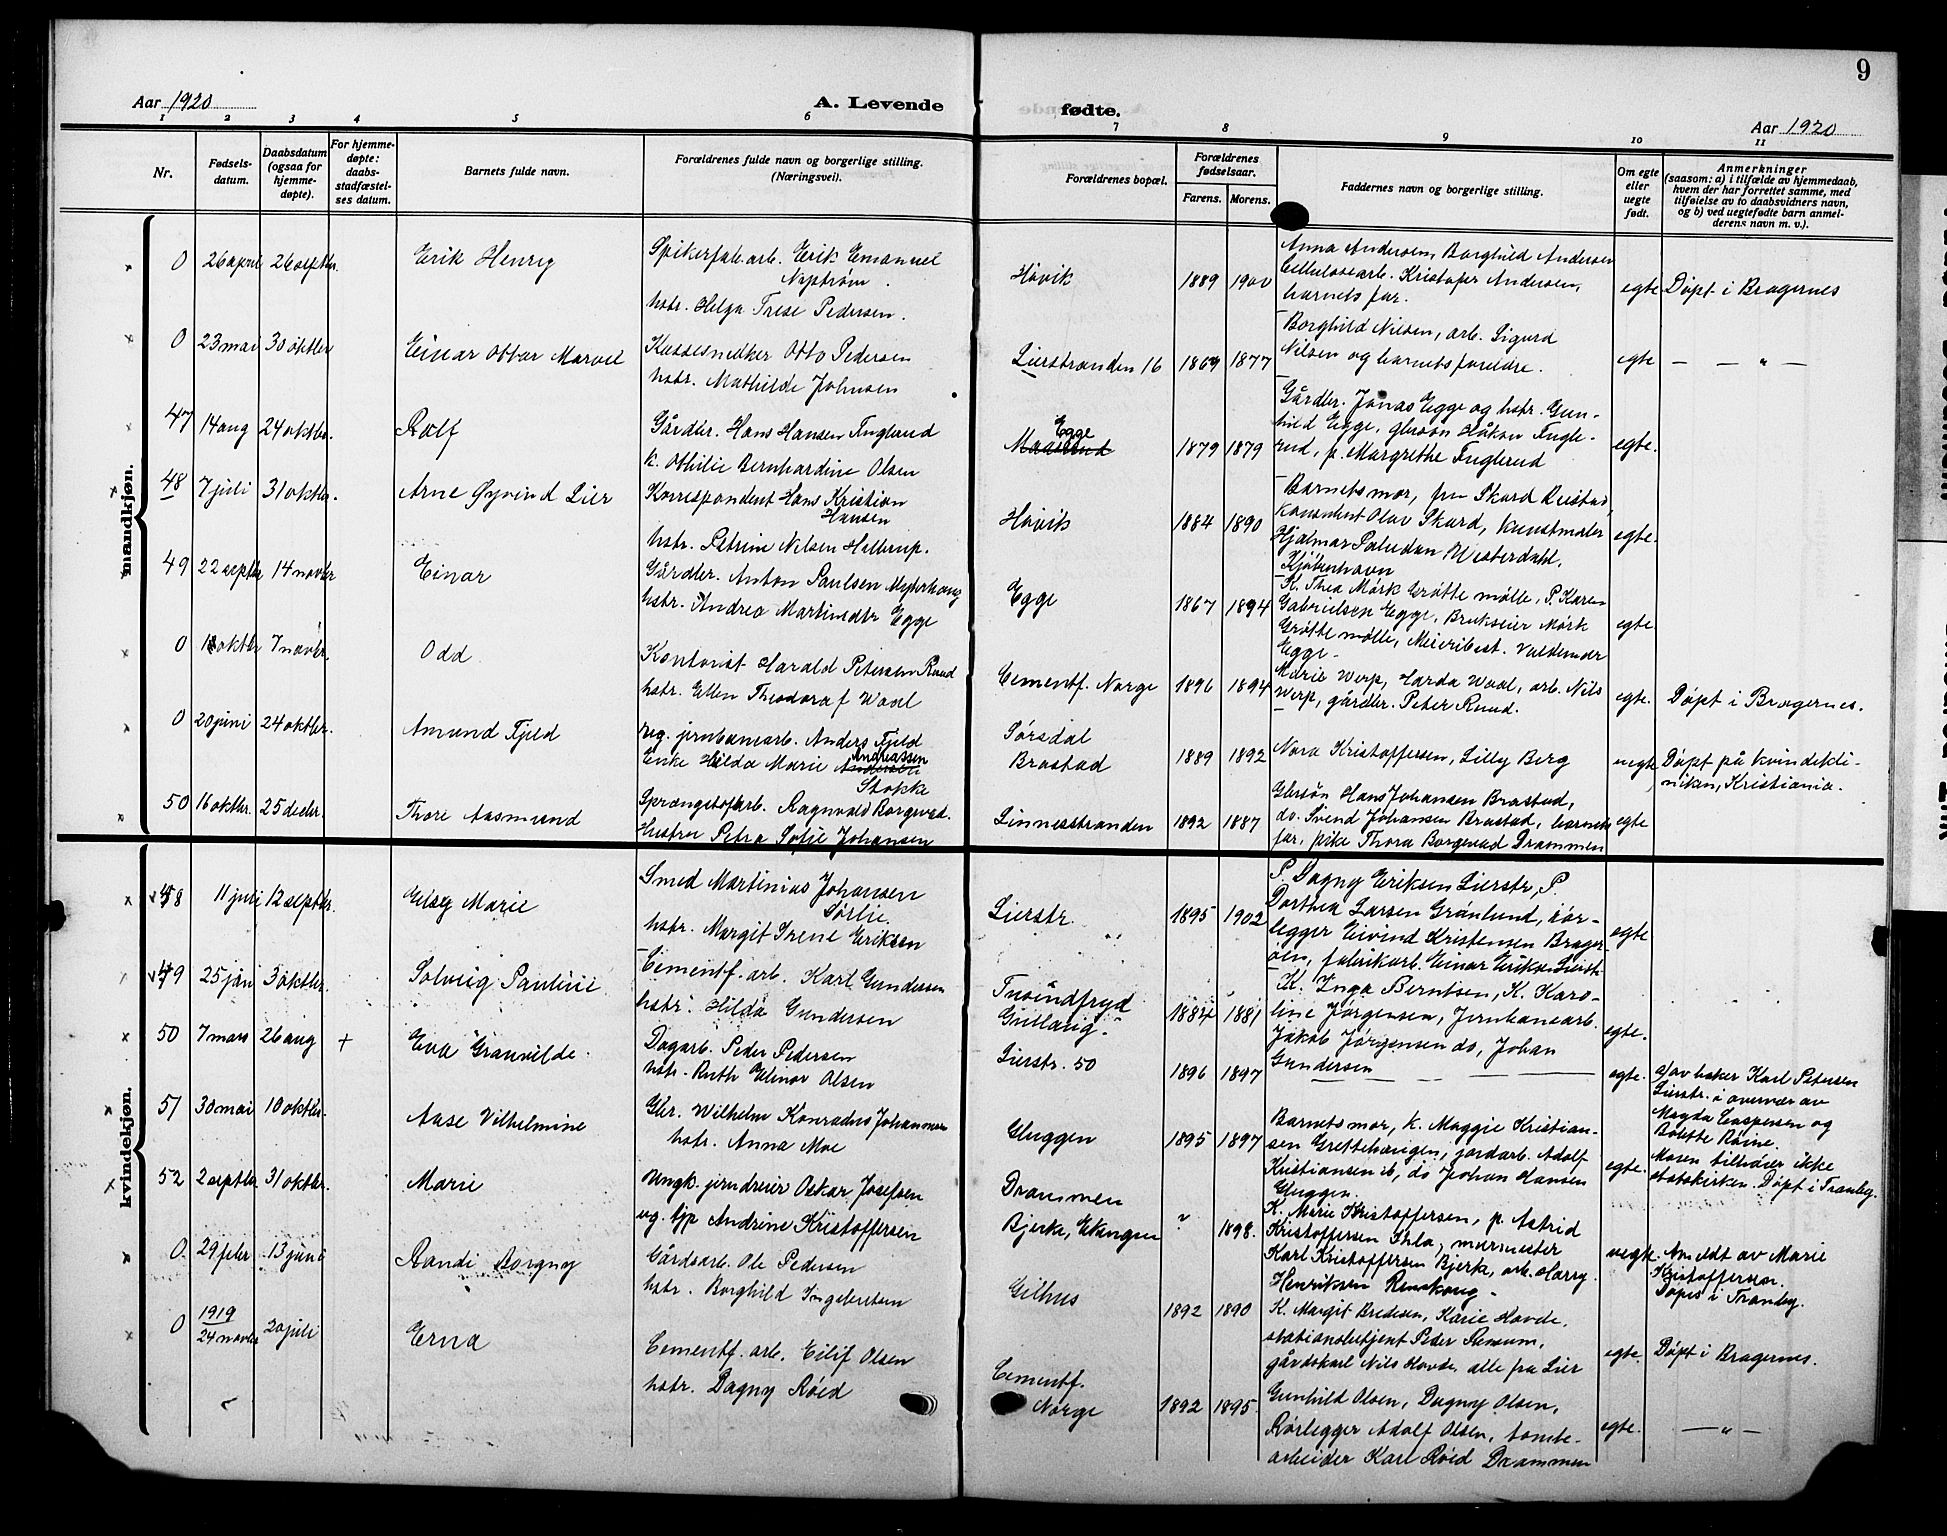 9
Aar 1920
A. Levende
fødte.
Aar 1920
1 2 3 4 5 6 7 8 9 10 11
Nr.
Fødsels-
datum.
Daabsdatum
(ogsaa for
hjemme-
døpte).
For hjemme-
døpte:
daabs-
stadfæstel-
ses datum.
Barnets fulde navn.
Forældrenes fulde navn og borgerlige stilling.
(Næringsvei).
Forældrenes bopæl.
Forældrenes
fødselsaar.
Farens. Morens.
Faddernes navn og borgerlige stilling.
Om egte
eller
uegte
født.
Anmerkninger
(saasom: a) i tilfælde av hjemmedaab,
hvem der har forrettet samme, med
tilføielse av to daabsvidners navn,
og b) ved uegtefødte barn anmel-
derens navn m. v.).
mandkjøn.
0 26 april 26 septbr. Erik Henry
Spikerfab.arb. Erik Emanuel
hstr. Helga Trese Pedersen.
Høvik 1889 1900
Anna Andersen, Borghild Andersen
Cellulosearb. Kristofer Andersen,
barnets far.
egte Døpt i Bragernes
0 23 mai 30 oktbr Einar Ottar Marvel
Kassesnedker Otto Pedersen
hstr. Mathilde Johnsen
Lierstranden 16 1869 1877
Borghild Nilsen, arb. Sigurd
Nilsen og barnets foreldre.
egte — — " —
47 14 aug 24 oktbr. Rolf
Gårdbr. Hans Hansen Fuglerud
k. Othilie Bernhardine Olsen
Egge
1879 1879
Gårdbr. Jonas Egge og hstr. Gun-
hild Egge, gbrsøn Håkon Fugle-
rud, p. Margrethe Fuglerud
egte.
48 7 juli 31 oktbr. Arne Øyvind Lier
Korrespondent Hans Kristian
Hansen
hstr. Petrine Nilsen Hallerup.
Høvik 1884 1890
Barnets mor, fru Skard Reistad,
konsulent Olav Skard, kunstmaler
Hjalmar Paludan Westerdahl,
Kjøbenhavn
egte.
49 22 septbr 14 novbr Einar
Gårdbr. Anton Paulsen Myhrhaug
hstr. Andrea Martinsdtr Egge
Egge 1867 1894
K. Thea Mørk Grøtte mølle, P. Karen
Gabrielsen Egge, Brukseier Mørk
Grøtte mølle, Meieribest. Valdemar
Egge.
egte.
0 oktbr 7 novbr. Odd
Kontorist Harald Petersen Ruud
hstr. Ellen Theodora f Waal
Cementf. Norge 1896 1894
Marie Werp, Harda Waal, arb. Nils
Werp, gårdbr. Peter Ruud.
egte. Døpt i Bragernes.
0 20 juni 24 oktbr. Amund Fjeld
ug. jernbanearb. Anders Fjeld
Enke Hilda Marie Andreassen
Stokke
Sørsdal
Brastad 1889 1892
Nora Kristoffersen, Lilly Berg
uegte Døpt på kvindekli-
niken, Kristiania.
50 16 oktbr. 25 decbr. Thore Aasmund
Sprængstofarb. Ragnvald Borgevad.
Hustru Petra Sofie Johansen
Linnesstranden 1892 1887
Gbrsøn Hans Johansen Brastad,
do. Svend Johansen Brastad, barnets
far, pike Thora Borgevad Drammen
egte
kvindekjøn.
48 11 juli 12 septbr. Elsy Marie
Smed Martinius Johansen
Sørlie
hstr. Margit Irene Eriksen
Lierstr. 1895 1902
P. Dagny Eriksen Lierstr, P.
Dorthea Larsen Grønlund, rør-
legger Eivind Kristensen Brager-
øen, fabrikarb. Einar Eriksen Lierstr.
egte
49 25 jan 3 oktbr. Solveig Pauline
Cementf. arb. Karl Gundersen
hstr. Hilda Gundersen
Tusindfryd
Gullaug. 1884 1881
K. Inga Berntsen, K. Karo-
line Jørgensen, Jernbanearb.
Jakob Jørgensen do, Johan
Gundersen
egte.
50 7 mars 26 aug + Eva Granvilde
Dagarb. Peder Pedersen
hstr. Ruth Elinor Olsen
Lierstr. 50 1896 1897
egte. av baker Karl Petersen
Lierstr. i overvær av
Magda Caspersen og
Bolette Røine.
51 30 mai 10 oktbr. Aase Vilhelmine
Gbr. Wilhelm Konradus Johannesen
hstr. Anna Moe
Gluggen 1895 1897
Barnets mor, k. Maggie Kristian-
sen Grettehaugen, jordarb. Adolf
Kristiansen ib, do Johan Hansen
Gluggen.
egte. Moren tilhører ikke
statskirken. Døpt i Tranby.
52 2 septbr 31 oktbr. Marie
Ungk. jerndreier Oskar Josefsen
ug. tjp Andrine Kristoffersen
Drammen
Bjerke, Ekengen " 1898.
K. Marie Kristoffersen, p. Astrid
Kristoffersen, murmester
Karl Kristoffersen Bjerk, arb. Harry
Henriksen
uegte. Anmeldt av Marie
Kristoffersen.
Døpt i Tranby.
0 29 febr 13 juni Randi Borgny
Gårdsarb. Ole Pedersen
hstr. Borghild Ingebretsen
Gilhus 1892 1890
K. Margit Bredesen, Karie Hovde,
stationsbetjent Peder Ramsum,
gårdskarl Nils Hovde, alle fra Lier
egte. Døpt i Bragernes.
0 1919
24 novbr 20 juli Erna
Cementf. arb. Eilif Olsen
hstr. Dagny Røed
Cementf.
Norge 1892 1895
Gunhild Olsen, Dagny Olsen,
Rørlegger Adolf Olsen, tomte-
arbeider Karl Røed Drammen
egte. — " —